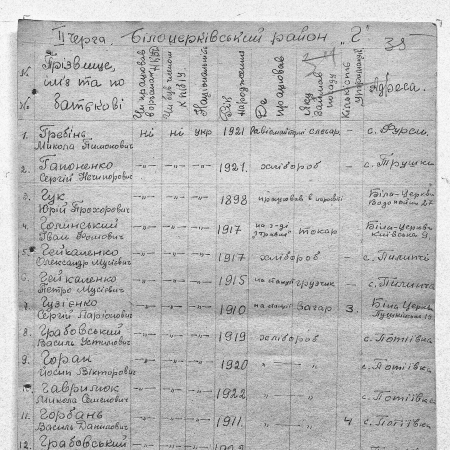 ІІ черга. Білоцерківський район „Г" 35
№ Прізвище, ім'я та по батькові Чи працював в органах НКВС Чи був членом Національність Рік народження Де працював Яку займав посаду Кількість Адреса.
1. Гребінь Микола Пимонович ні ні укр 1921 слюсар. – с. Фурси.
2. Гапоненко Сергій Нечипорович –„– –„– –„– 1921. хлібороб – с. Трушки
3. Гук Юрій Прохорович –„– –„– –„– 1898 працював в – Біла-Церква 27
4. Голинський Іван Хомович –„– –„– –„– 1917 на з-ді токар – Біла-Церква Київська 9.
5. Гейкаленко Олександр Мусієвич –„– –„– –„– 1917 хлібороб – с. Пилипчі
6. Гейкаленко Петро Мусієвич –„– –„– –„– 1915 на станції грузчик – с. Пилипча
7. Гузієнко Сергій Ларіонович –„– –„– –„– 1910 на станції 3. Біла Церква Пушкінська
8. Грабовський Василь Устимович –„– –„– –„– 1919 хлібороб – с. Потіївка
9. Горан Йосип Вікторович –„– –„– –„– 1920 –„– – с. Потіївка
10. Гаврилюк Микола Семенович –„– –„– –„– 1922 –„– – с. Потіївка
11. Горбань Василь Данилович –„– –„– –„– 1911. –„– 4 с. Потіївка
12. Грабовський